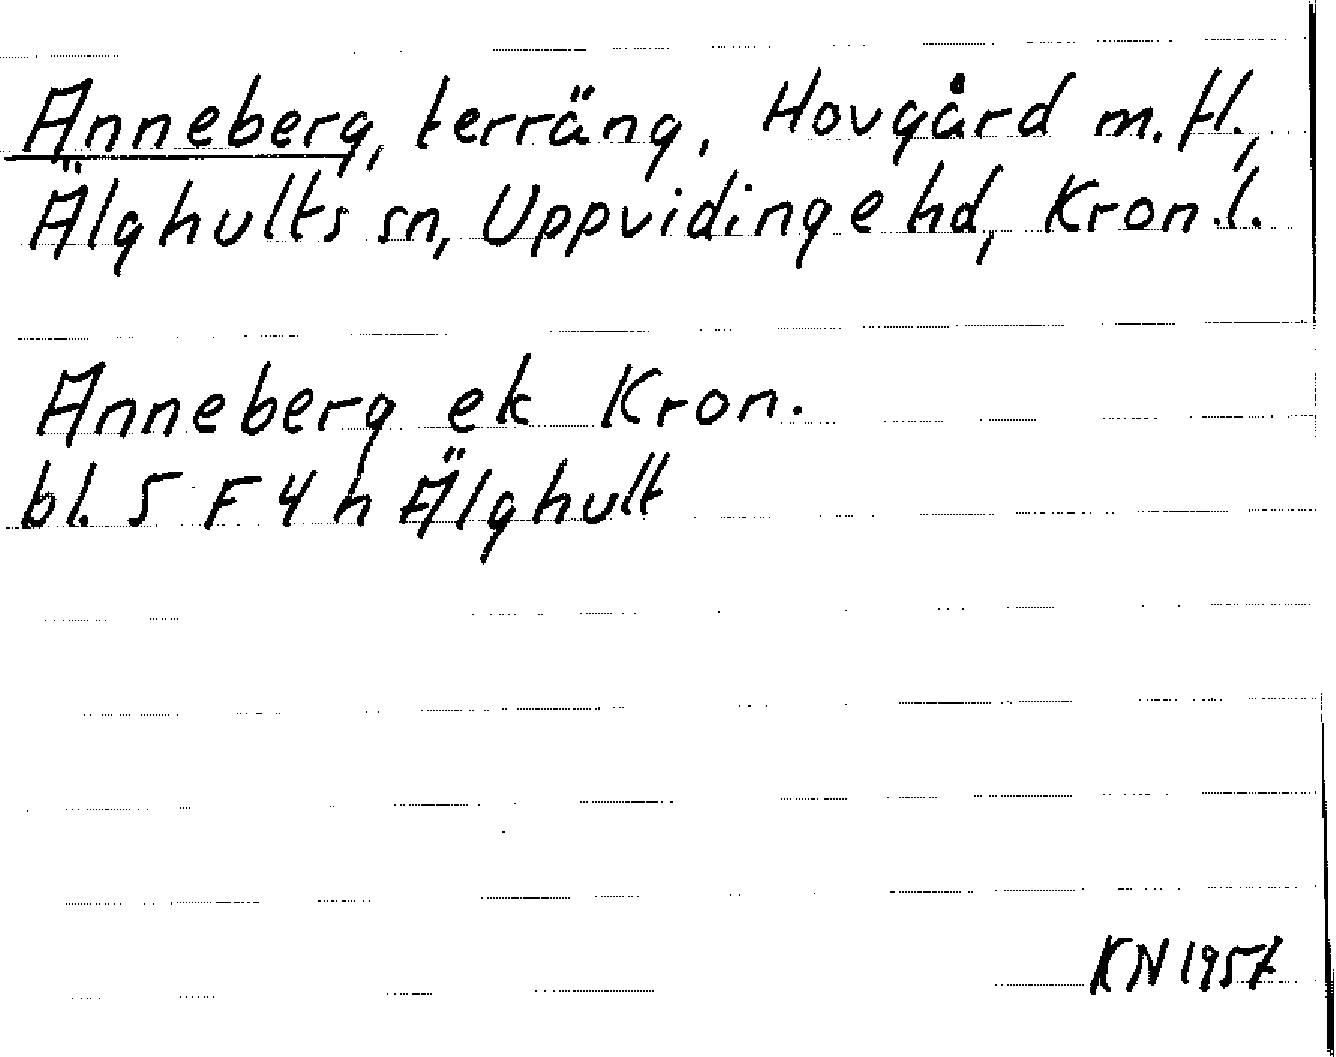 Anneberg, terräng, Hovgård m.fl.,
Älghults sn, Uppvidinge hd, Kron.l.
Anneberg ek Kron.
bl. 5 F 4 h Älghult
KN 1957